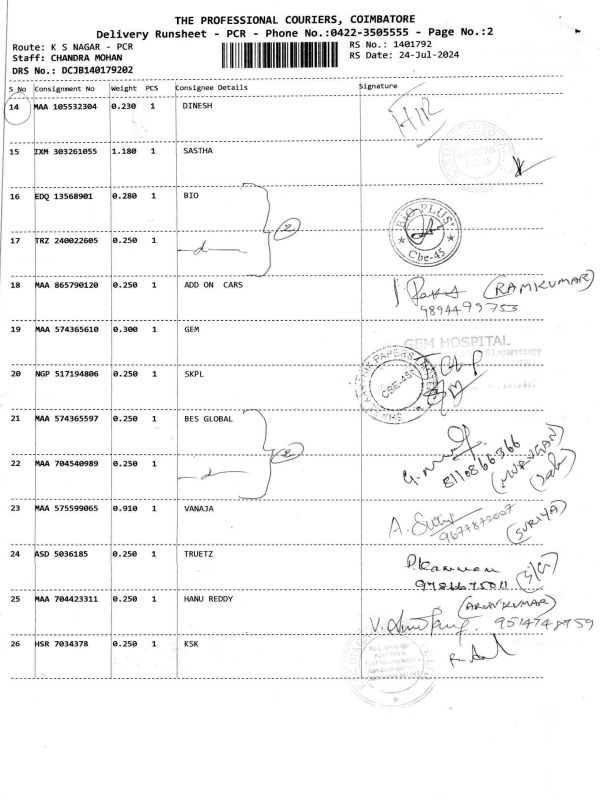 THE PROFESSIONAL COURIERS, COIMBATORE
Delivery Runsheet - PCR - Phone No.:0422-3505555 - Page No.:2
Route: K S NAGAR - PCR RS No.: 1401792
Staff: CHANDRA MOHAN RS Date: 24-Jul-2024
DRS No.: DCJB140179202
S_No Consignment No Weight PCS Consignee Details Signature
14 MAA 105532304 0.230 1 DINESH
15 IXM 303261055 1.180 1 SASTHA
16 EDQ 13568901 0.280 1 BIO
2
BIO PLUS
Cbe-45
17 TRZ 240022605 0.250 1
18 MAA 865790120 0.250 1 ADD ON CARS (RAMKUMAR)
9894499753
19 MAA 574365610 0.300 1 GEM
GEM HOSPITAL
Laparoscopy
20 NGP 517194806 0.250 1 SKPL
CBE-45
21 MAA 574365597 0.250 1 BES GLOBAL
8110866366
(MURUGAN)
22 MAA 704540989 0.250 1
23 MAA 575599065 0.910 1 VANAJA
9677872007
(SURIYA)
24 ASD 5036185 0.250 1 TRUETZ P.Kannan
25 MAA 704423311 0.250 1 HANU REDDY (ARUNKUMAR)
9514748959
26 HSR 7034378 0.250 1 KSK